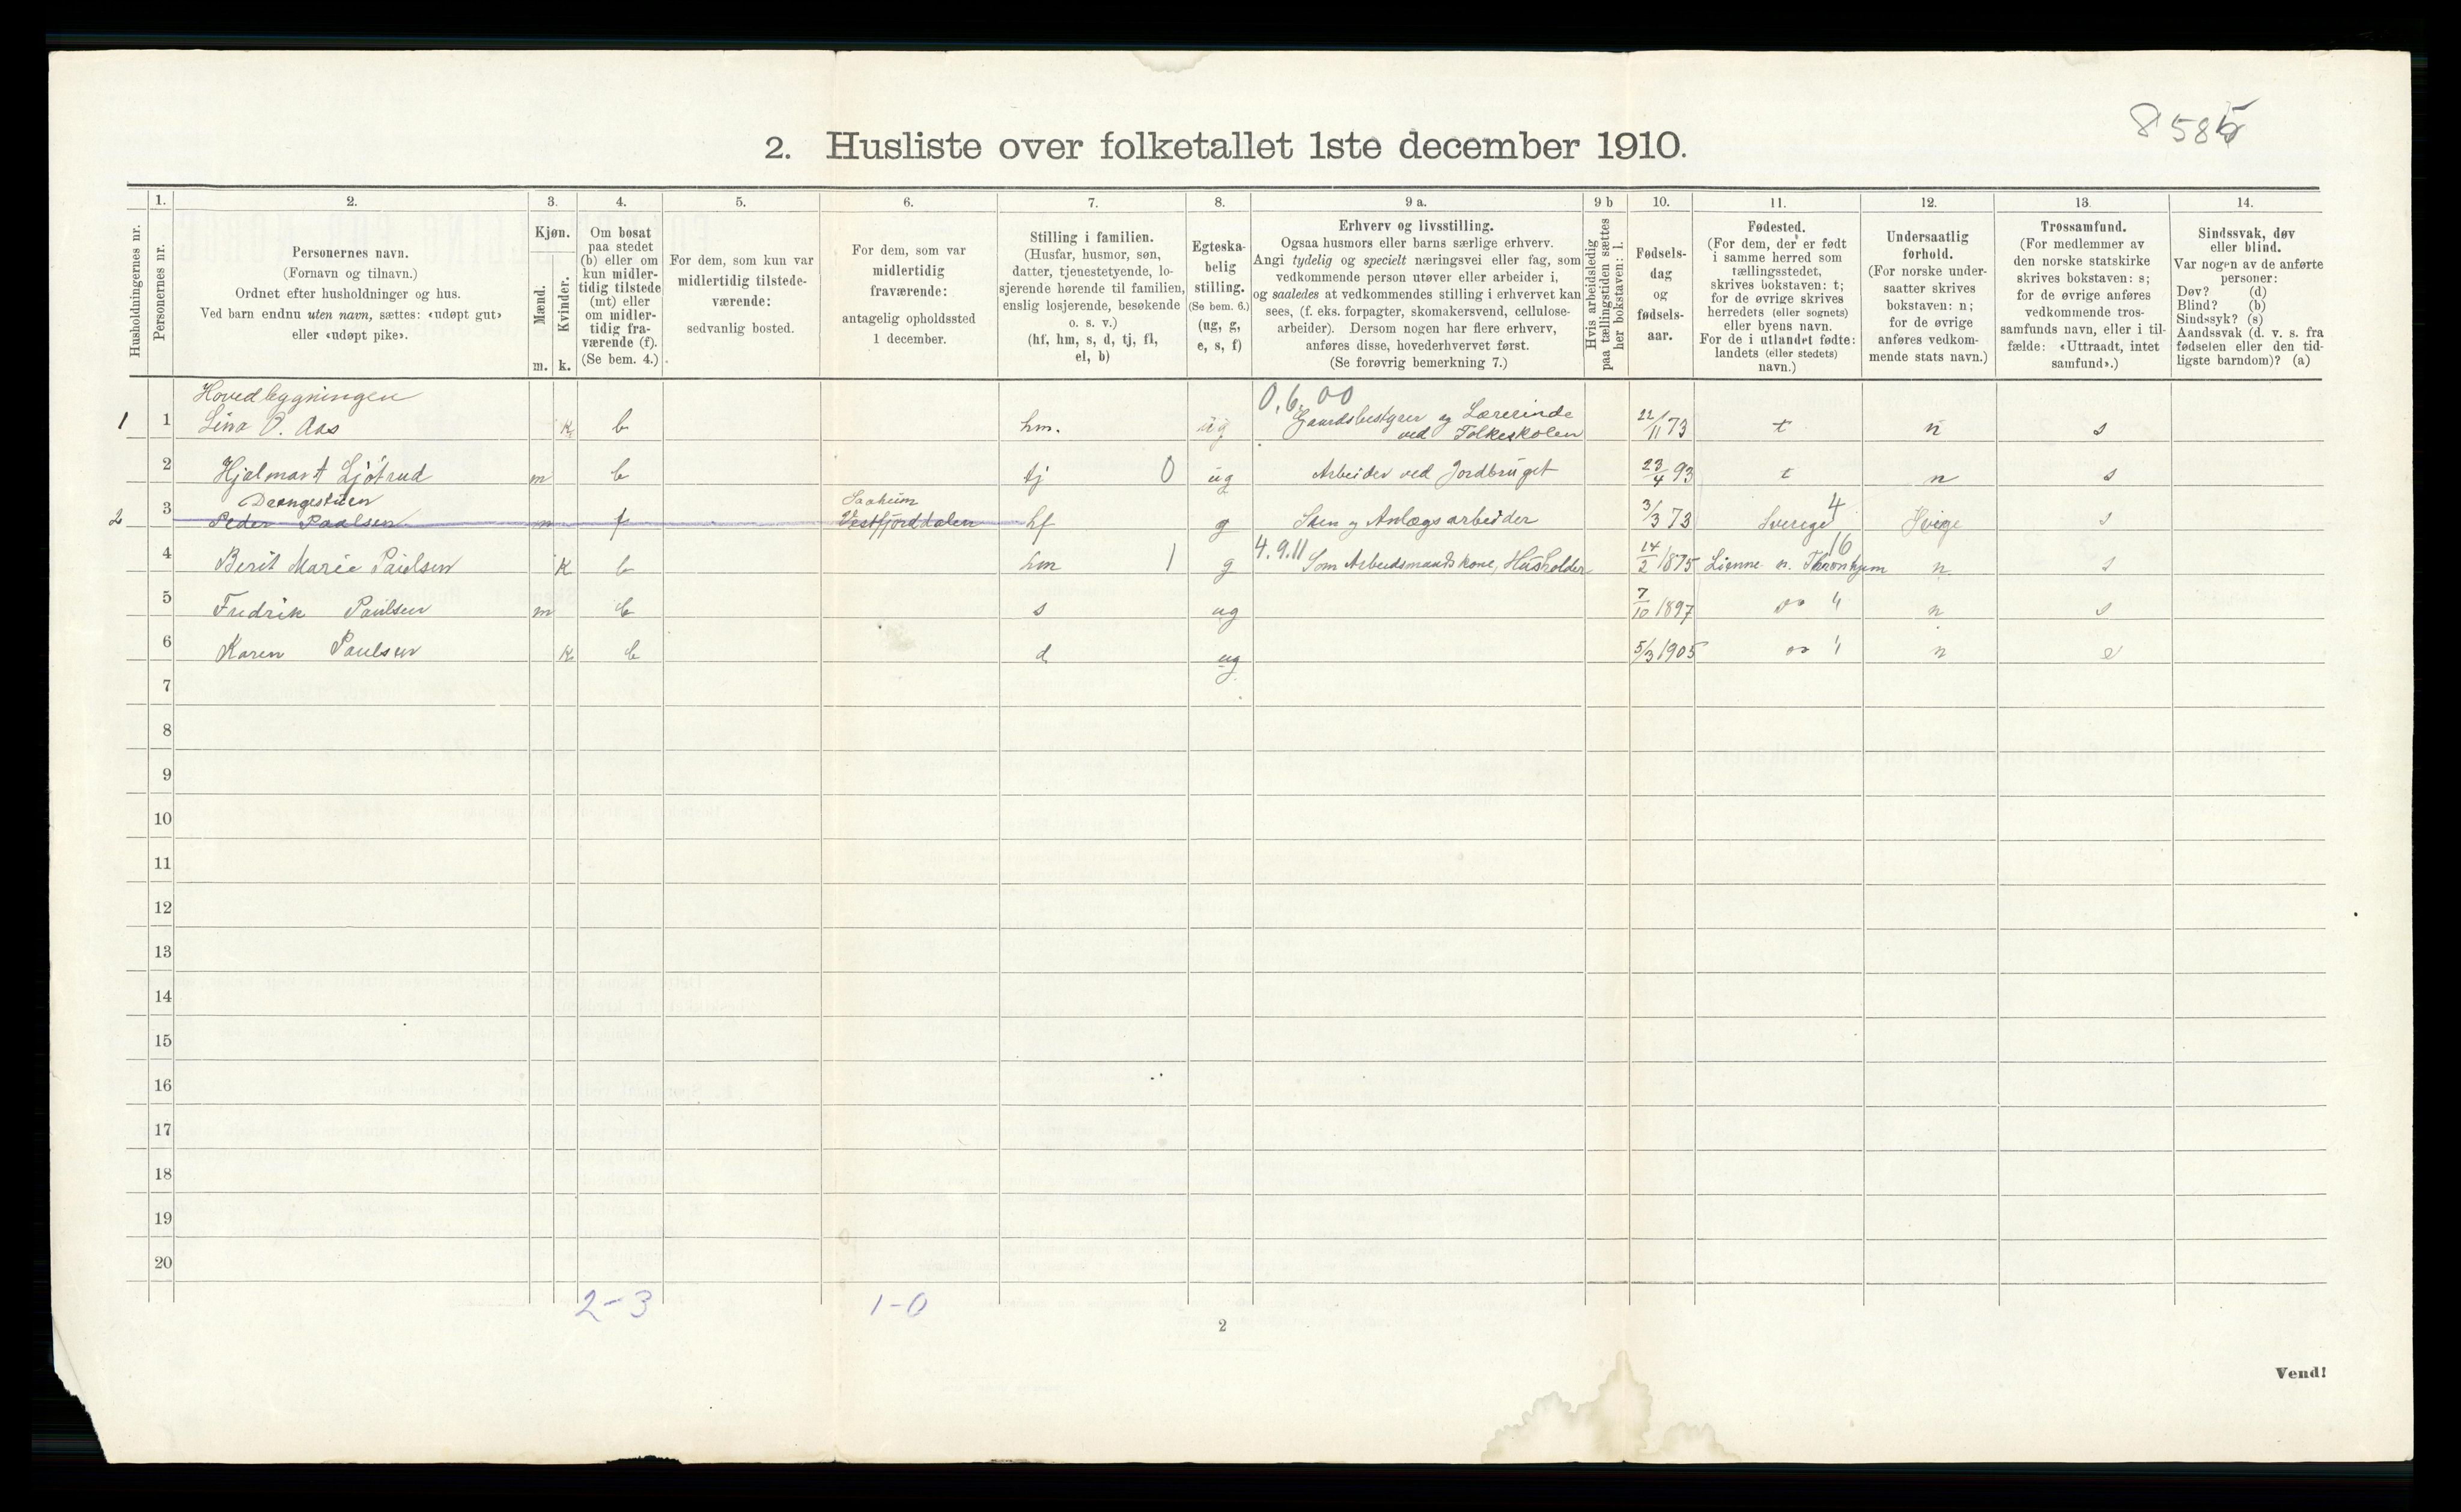 8585
2. Husliste over folketallet 1ste december 1910.
Husholdningernes nr.
1.
Personernes nr.
2.
Personernes navn.
(Fornavn og tilnavn.)
Ordnet efter husholdninger og hus.
Ved barn endnu uten navn, sættes: «udøpt gut»
eller «udøpt pike».
3.
Kjøn.
Mænd.
Kvinder.
m. k.
4.
Om bosat
paa stedet
(b) eller om
kun midler-
tidig tilstede
(mt) eller
om midler-
tidig fra-
værende (f).
(Se bem. 4.)
5.
For dem, som kun var
midlertidig tilstede-
værende:
sedvanlig bosted.
6.
For dem, som var
midlertidig
fraværende:
antagelig opholdssted
1 december.
7.
Stilling i familien.
(Husfar, husmor, søn,
datter, tjenestetyende, lo-
sjerende hørende til familien,
enslig losjerende, besøkende
o. s. v.)
(hf, hm, s, d, tj, fl,
el, b)
8.
Egteska-
belig
stilling.
(Se bem. 6.)
(ug, g,
e, s, f)
9 a.
Erhverv og livsstilling.
Ogsaa husmors eller barns særlige erhverv.
Angi tydelig og specielt næringsvei eller fag, som
vedkommende person utøver eller arbeider i,
og saaledes at vedkommendes stilling i erhvervet kan
sees, (f. eks. forpagter, skomakersvend, cellulose-
arbeider). Dersom nogen har flere erhverv,
anføres disse, hovederhvervet først.
(Se forøvrig bemerkning 7.)
9 b
Hvis arbeidsledig
paa tællingstiden sættes
her bokstaven: l.
10.
Fødsels-
dag
og
fødsels-
aar.
11.
Fødested.
(For dem, der er født
i samme herred som
tællingsstedet,
skrives bokstaven: t;
for de øvrige skrives
herredets (eller sognets)
eller byens navn.
For de i utlandet fødte:
landets (eller stedets)
navn.)
12.
Undersaatlig
forhold.
(For norske under-
saatter skrives
bokstaven: n;
for de øvrige
anføres vedkom-
mende stats navn.)
13.
Trossamfund.
(For medlemmer av
den norske statskirke
skrives bokstaven: s;
for de øvrige anføres
vedkommende tros-
samfunds navn, eller i til-
fælde: «Uttraadt, intet
samfund».)
14.
Sindssvak, døv
eller blind.
Var nogen av de anførte
personer:
Døv? (d)
Blind? (b)
Sindssyk? (s)
Aandssvak (d. v. s. fra
fødselen eller den tid-
ligste barndom)? (a)
Hovedbygningen 0.6.00
1 1 Lina O. Aas k b hm. ug Gaardsbestyrer og Lærerinde 22/11 73 t n s
ved Folkeskolen
2 Hjalmart Ljøtrud m b tj 0 ug Arbeider ved Jordbruget 23/4 93 t n s
Drengestuen Saaheim 4
2 3 Peder Paalsen m f Vestfjorddalen hf g Sten og Anlægsarbeider 3/3 73 Sverege s
4.9.11 16
4 Berit Marie Paulsen k b hm 1 g Som Arbeidsmands kone, Husholder 14/2 1875 Lienne n. Thronhjem n. s
5 Fredrik Paulsen m b s ug 7/10 1897 do " n s
6 Karen Paulsen k b d ug 5/3 1905 do " n s
7
8
9
10
11
12
13
14
15
16
17
18
19
20
2-3 1-0
2
Vend!